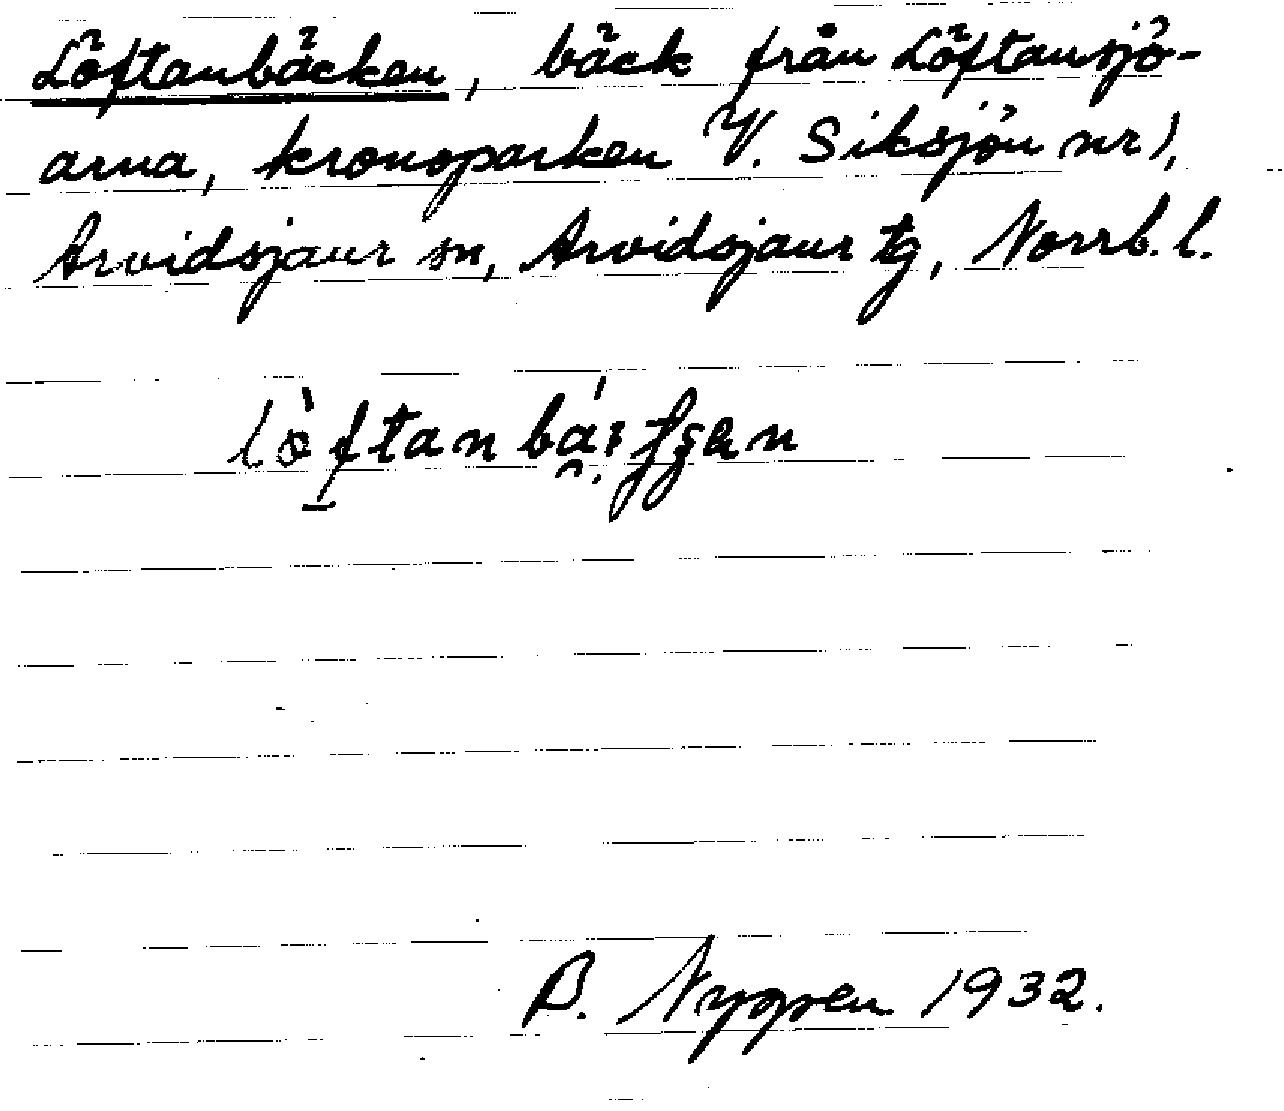 Löftanbäcken, bäck från Löftansjö-
arna, kronoparken V. Siksjön nr 1,
Arvidsjaur sn, Arvidsjaur tg, Norrb. l.
B. Nygren 1932.